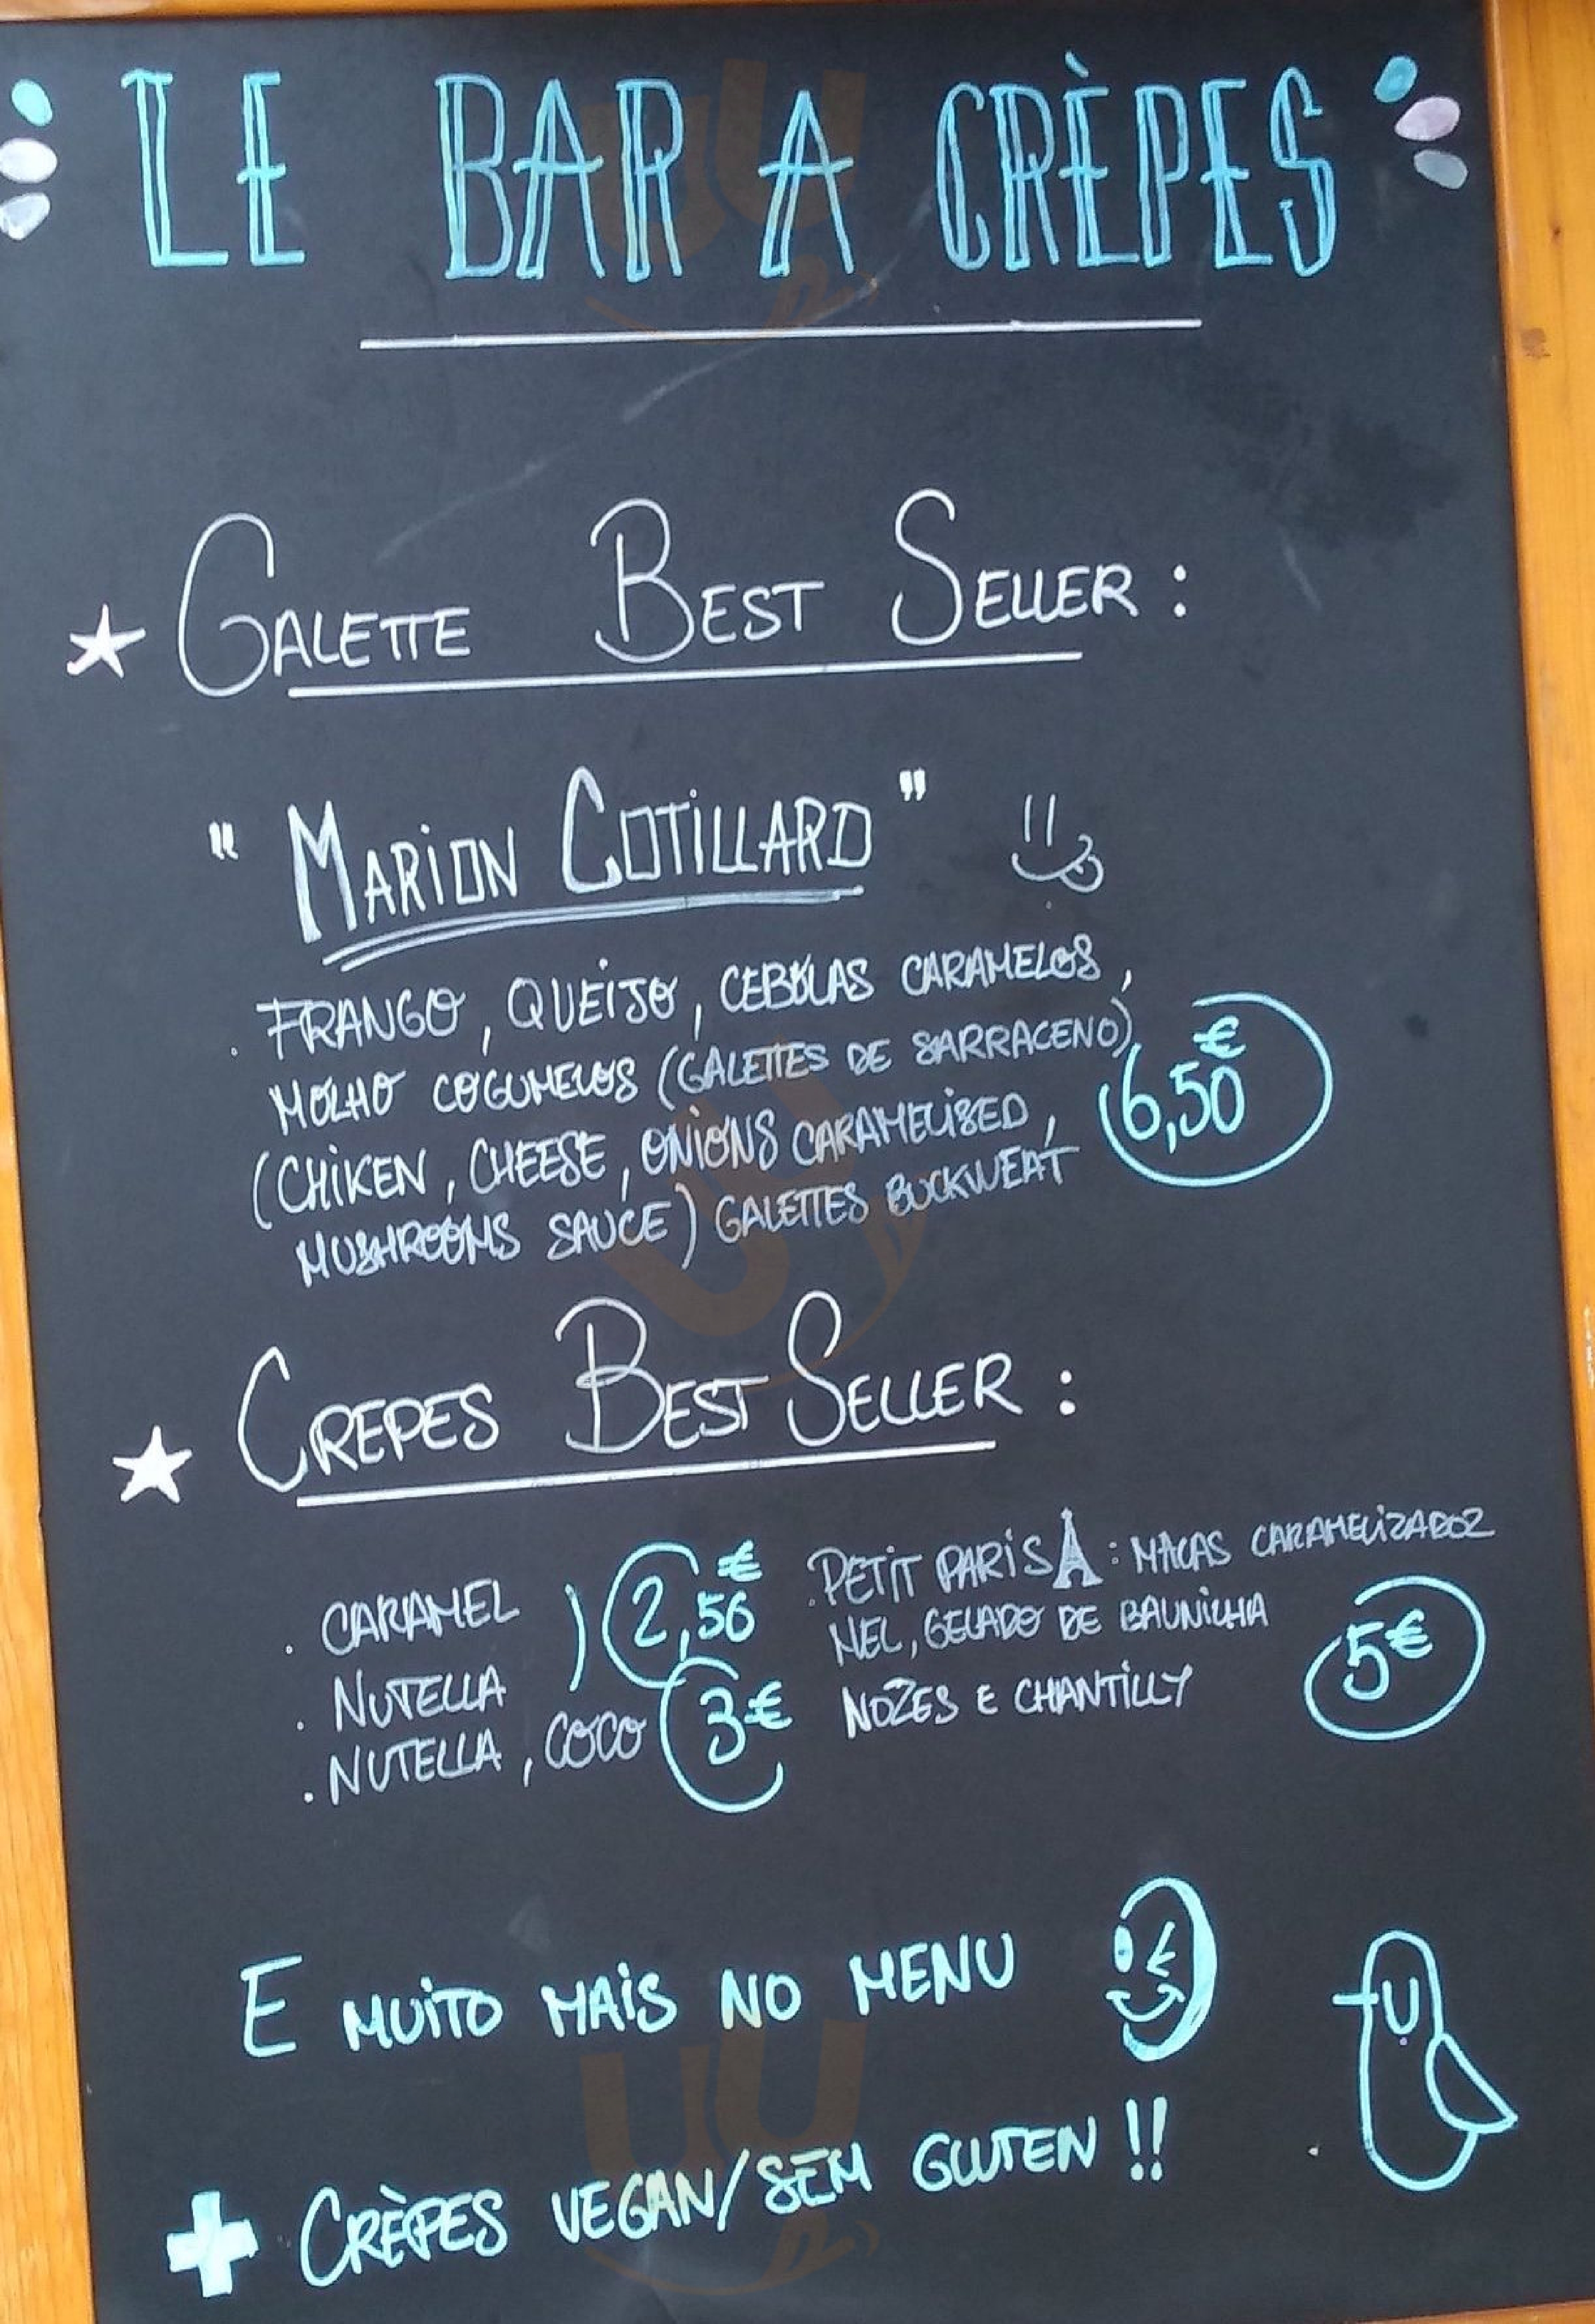 LE BAR A CRÈPES
GALETTE BEST SELLER :
" MARION COTILLARD "
. FRANGO, QUEIJO, CEBOLAS CARAMELOS,
MOLHO COGUMELOS (GALETTES DE SARRACENO)
(CHIKEN, CHEESE, ONIONS CARAMELISED,
MUSHROOMS SAUCE) GALETTES BUCKWEAT
6,50 €
CREPES BEST SELLER :
. CARAMEL
. NUTELLA
2,50 €
. NUTELLA, COCO 3€
. PETIT PARIS : MACAS CARAMELIZADOZ
MEL, GELADO DE BAUNILHA
NOZES E CHANTILLY
5€
E MUITO MAIS NO MENU
+ CRÈPES VEGAN/SEM GLUTEN !!